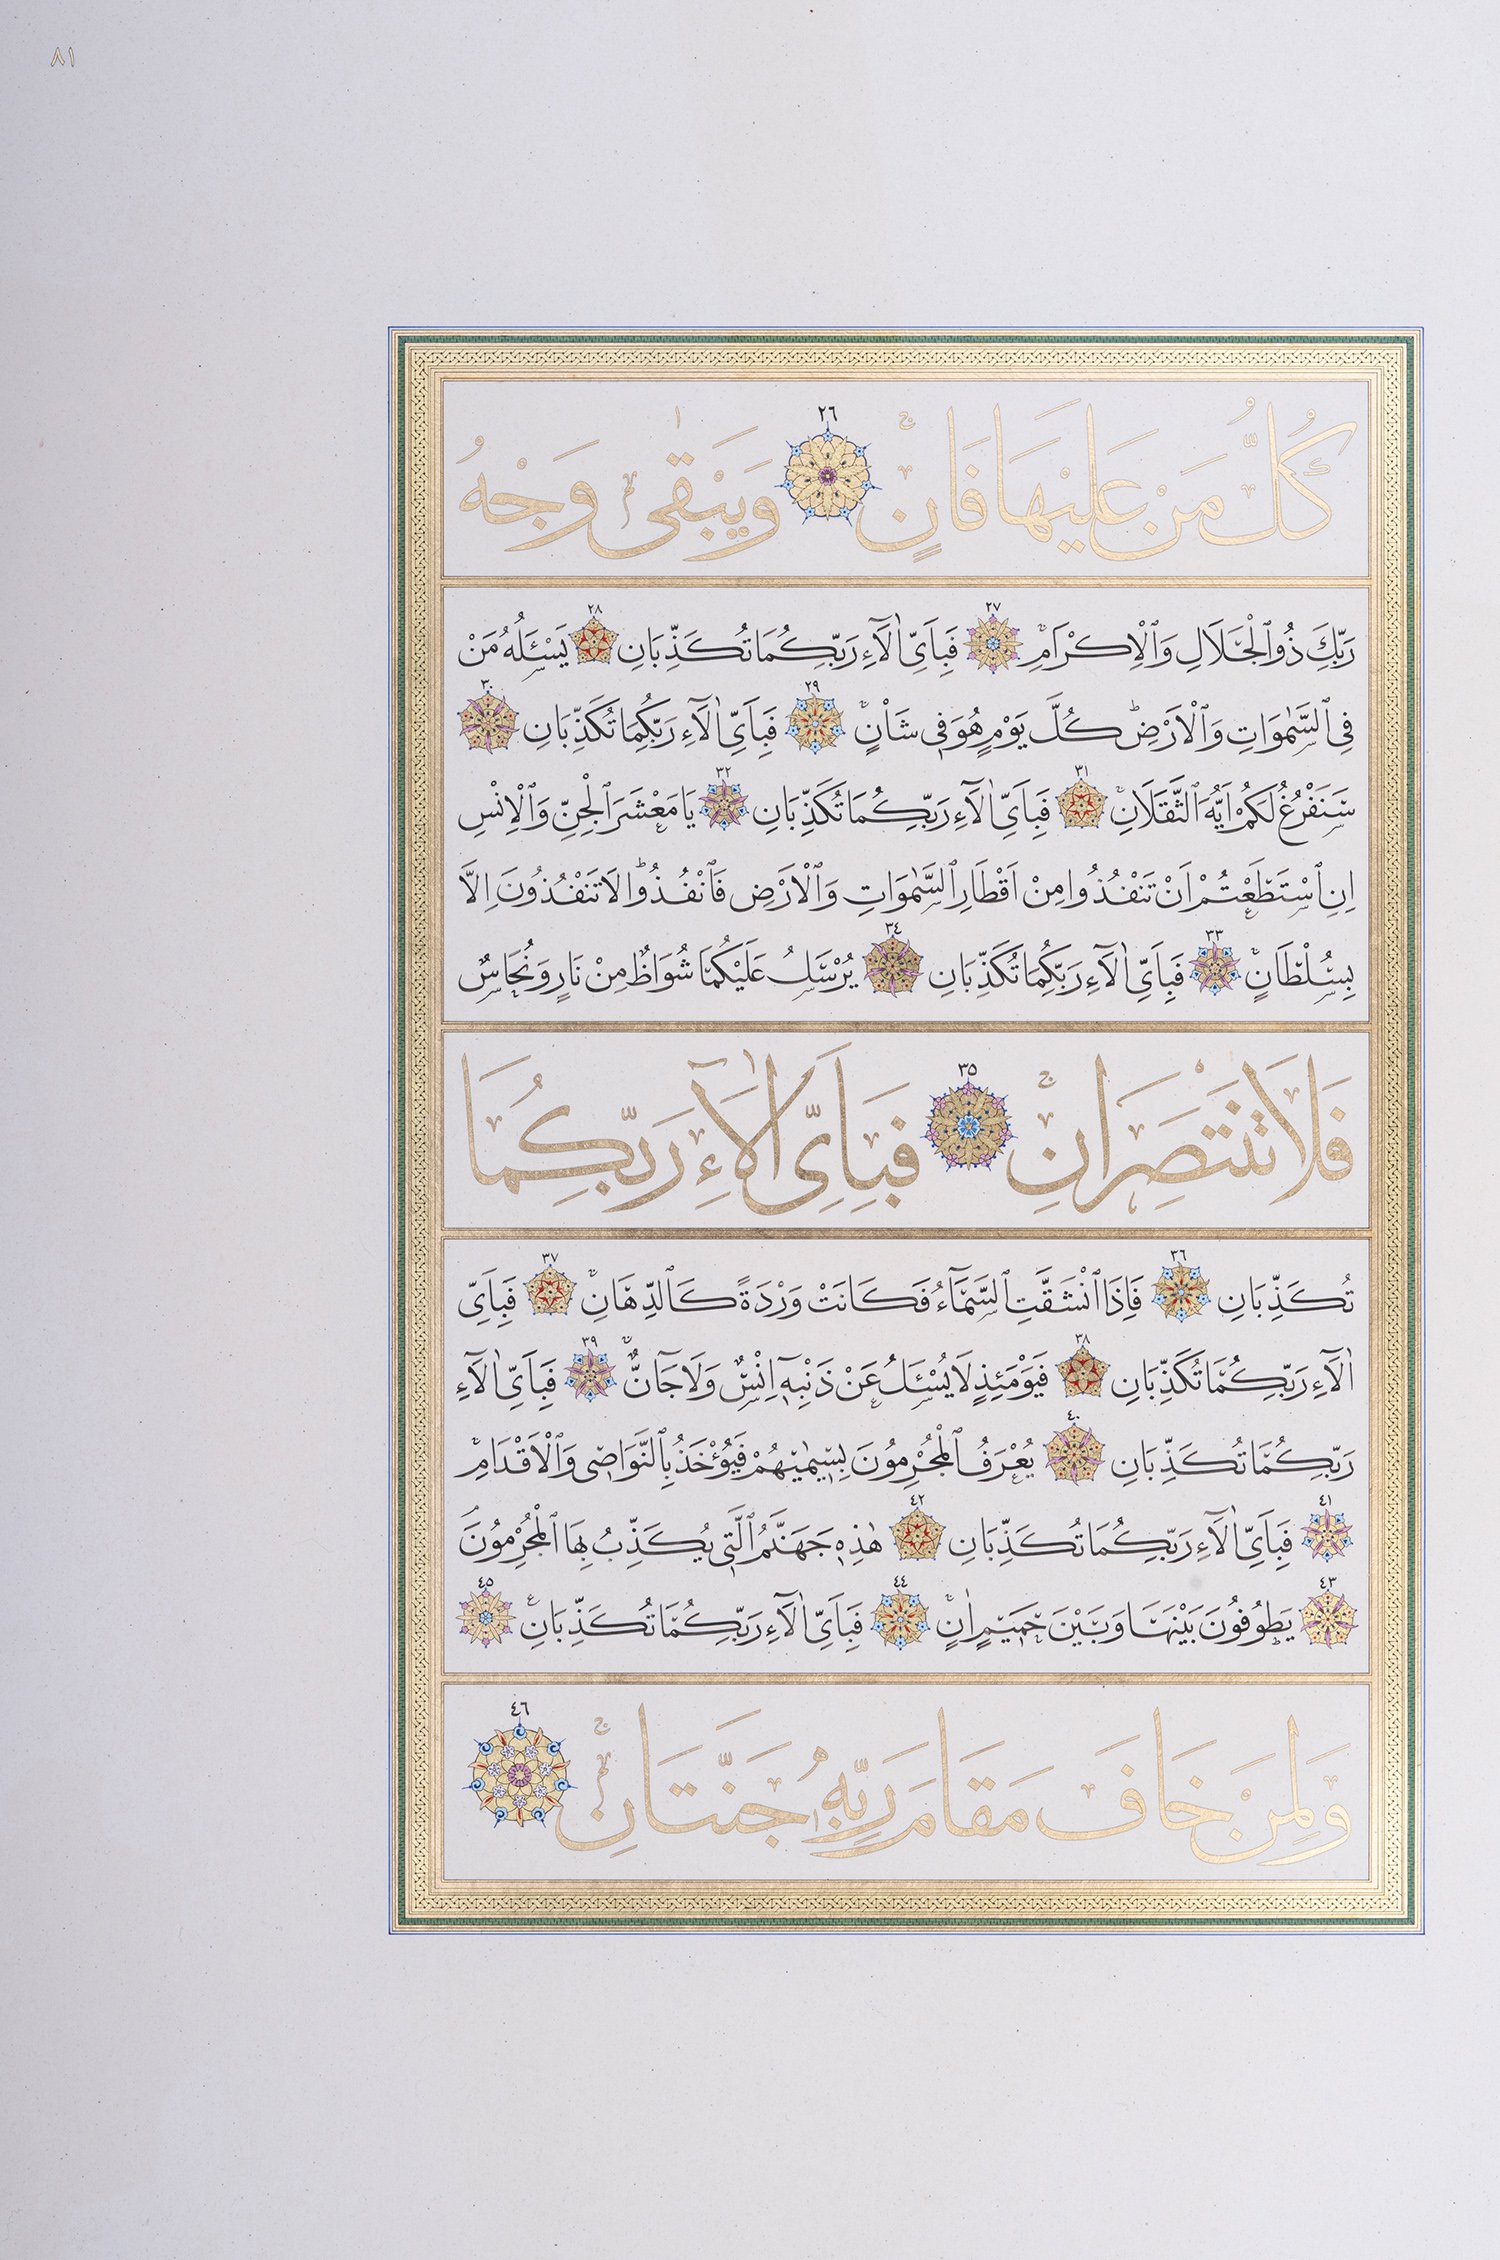 ٨١
كُلُّ مَنْ عَلَيْهَا فَانٍۚ ٢٦ وَيَبْقٰى وَجْهُ
رَبِّكَ ذُو ٱلْجَلَالِ وَٱلْاِكْرَامِۚ ٢٧ فَبِاَيِّ اٰلَٓاءِ رَبِّكُمَا تُكَذِّبَانِ ٢٨ يَسْـَٔلُهُ مَنْ
فِي ٱلسَّمٰوَاتِ وَٱلْاَرْضِۜ كُلَّ يَوْمٍ هُوَ فٖي شَاْنٍۚ ٢٩ فَبِاَيِّ اٰلَٓاءِ رَبِّكُمَا تُكَذِّبَانِ ٣٠
سَنَفْرُغُ لَكُمْ اَيُّهَ ٱلثَّقَلَانِۚ ٣١ فَبِاَيِّ اٰلَٓاءِ رَبِّكُمَا تُكَذِّبَانِ ٣٢ يَا مَعْشَرَ ٱلْجِنِّ وَٱلْاِنْسِ
اِنِ ٱسْتَطَعْتُمْ اَنْ تَنْفُذُوا مِنْ اَقْطَارِ ٱلسَّمٰوَاتِ وَٱلْاَرْضِ فَٱنْفُذُواۜ لَا تَنْفُذُونَ اِلَّا
بِسُلْطَانٍۚ ٣٣ فَبِاَيِّ اٰلَٓاءِ رَبِّكُمَا تُكَذِّبَانِ ٣٤ يُرْسَلُ عَلَيْكُمَا شُوَاظٌ مِنْ نَارٍ وَنُحَاسٌ
فَلَا تَنْتَصِرَانِۚ ٣٥ فَبِاَيِّ اٰلَٓاءِ رَبِّكُمَا
تُكَذِّبَانِ ٣٦ فَاِذَا ٱنْشَقَّتِ ٱلسَّمَٓاءُ فَكَانَتْ وَرْدَةً كَٱلدِّهَانِۚ ٣٧ فَبِاَيِّ
اٰلَٓاءِ رَبِّكُمَا تُكَذِّبَانِ ٣٨ فَيَوْمَئِذٍ لَا يُسْـَٔلُ عَنْ ذَنْبِهٖٓ اِنْسٌ وَلَا جَٓانٌّۚ ٣٩ فَبِاَيِّ اٰلَٓاءِ
رَبِّكُمَا تُكَذِّبَانِ ٤٠ يُعْرَفُ ٱلْمُجْرِمُونَ بِسٖيمٰيهُمْ فَيُؤْخَذُ بِٱلنَّوَاصٖي وَٱلْاَقْدَامِۚ
٤١ فَبِاَيِّ اٰلَٓاءِ رَبِّكُمَا تُكَذِّبَانِ ٤٢ هٰذِهٖ جَهَنَّمُ ٱلَّتٖي يُكَذِّبُ بِهَا ٱلْمُجْرِمُونَۘ
٤٣ يَطُوفُونَ بَيْنَهَا وَبَيْنَ حَمٖيمٍ اٰنٍۚ ٤٤ فَبِاَيِّ اٰلَٓاءِ رَبِّكُمَا تُكَذِّبَانِ ٤٥
وَلِمَنْ خَافَ مَقَامَ رَبِّهٖ جَنَّتَانِۚ ٤٦